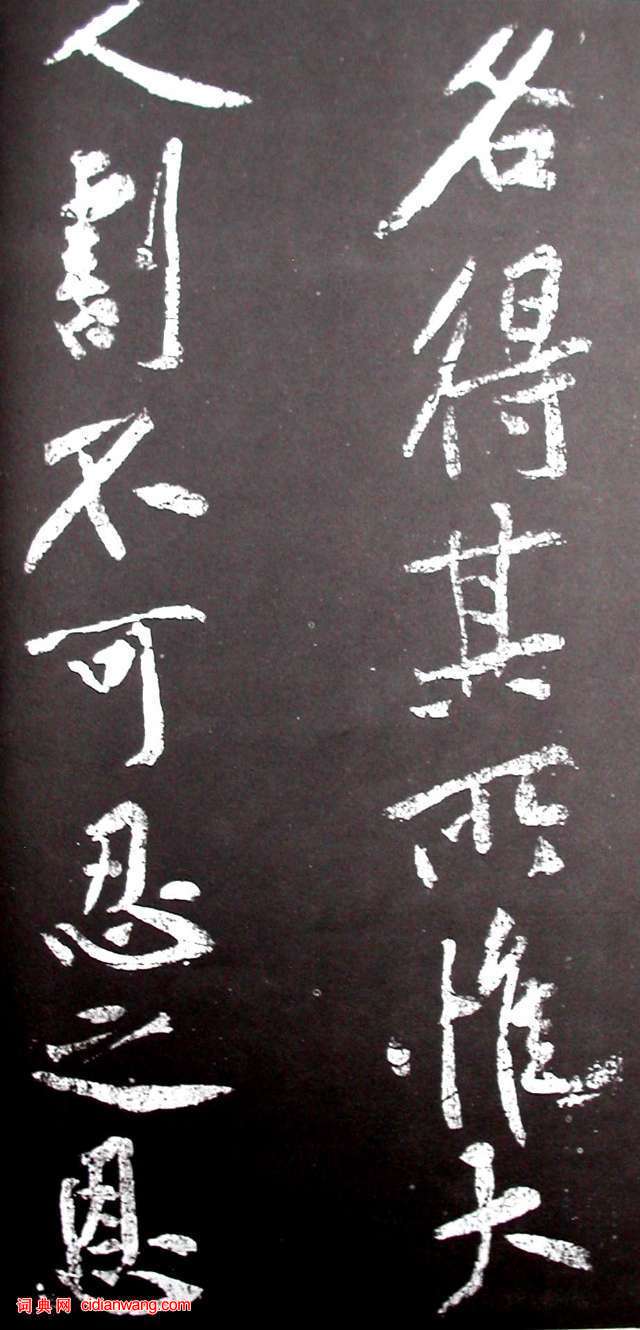 各得其所惟大
人割不可忍之恩
词典网 cidianwang.com